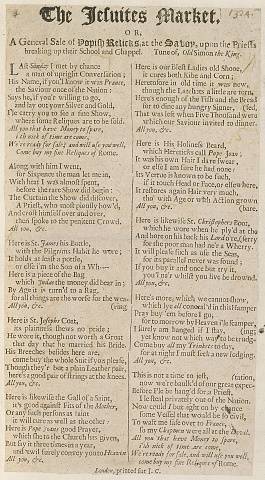 The Jesuites Market.
OR,
A General Sale of Popish Relicks, at the Savoy, upon the Priests
breaking up their School and Chappel. Tune of, Old Simon the King.
LAst Sunday I met by chance
a man of upright Conversation;
His Name, if you'd know it was France,
the Saviour once of the Nation:
Says he, if you're willing to go,
and lay out your Silver and Gold,
I'le carry you to see a fine Show,
where some Reliques are to be sold.
All you that have Money to spare,
i'th nick of time are come,
We're ready for sale; and will use you well,
Come buy my fine Reliques of Rome.
Along with him I went,
for Sixpence the man let me in,
With heat I was almost spent,
before the rare Show did begin:
The Curtain the Show did discover,
A Priest, who most piously bow'd,
and cross'd himself over and over,
then spoke to the penitent Crowd.
All you, &c.
Here is St. James his Bottle,
with the Pilgrims Habit he wore;
It holds at least a pottle,
or else i'm the Son of a Wh—
Here is a piece of the Bag
which Judas the money did bear in;
By Age it is turn'd to a Rag,
for all things are the worse for the wearing.
All you, &c.
Here is St. Josephs Coat,
its plainness shews no pride;
He wore it, though not worth a Groat
that day that he married his Bride.
His Breeches besides here are,
come buy the whole Suit if you please,
Though they're but a plain Leather pair,
here's a good pair of strings at the knees.
All you, &c.
Here is likewise the Gall of a Saint,
it's good against Fits of the Mother,
Or any such persons as taint
it will cure as well as the other:
Here is Pope Joans good Prayer,
which she to the Church has given,
But say it three times in a year,
and 'twill surely convey you to Heaven
All you, &c.
Here is our Blest Ladies old Shooe,
it cures both Kibe and Corn;
Heretofore in old time it was new,
though the Leather's a little now torn.
Here's enough of the Fish and the Bread
for to dine any hungry Sinner,
That was left when Five Thousand were
which our Saviour invited to dinner.
All you, &c.
Here is His Holiness Beard,
which Hereticks call Pope Joan,
It was his own Hair I dare swear,
or else I am sure he had none:
Its Vertue is known to be such,
if it touch Head or Face, or elsewhere,
It restores again Hair very much,
tho with Age or with Action grown
All you, &c.
Here is likewise St. Christophers Boat,
which he wore when he ply'd at the
And bore on his back his Lord o're, ferry
for the poor man had ne'r a Wherry.
It will please such as use the Seas,
for its parallel never was found;
If you buy it and once but try it,
you'l ne'r whilst you live be drownd.
All you, &c.
Here's more, which we cannot show,
which lye all conceal'd in this Hamper
Pray buy 'em before I go,
for to morrow by Heaven I'le scamper,
I surely am hanged if I stay,
ye know not which way to be trudging
Come buy all my Trinkets to day,
for at night I must seek a new lodging.
All you, &c.
This is not a time to jest,
now we're baulk'd of our great expectation;
Before I'le be hang'd for a Priest,
I'le steal privately out of the Nation.
Now could I but light on by chance
some Vessel that would be so civil,
To waft me safe over to France,
my Chapmen were all at the Devil.
All you that have Money to spare,
i'th nick of time are come,
We're ready for sale, and will use you well,
come buy my fine Reliques of Rome.
London, printed for J. C.